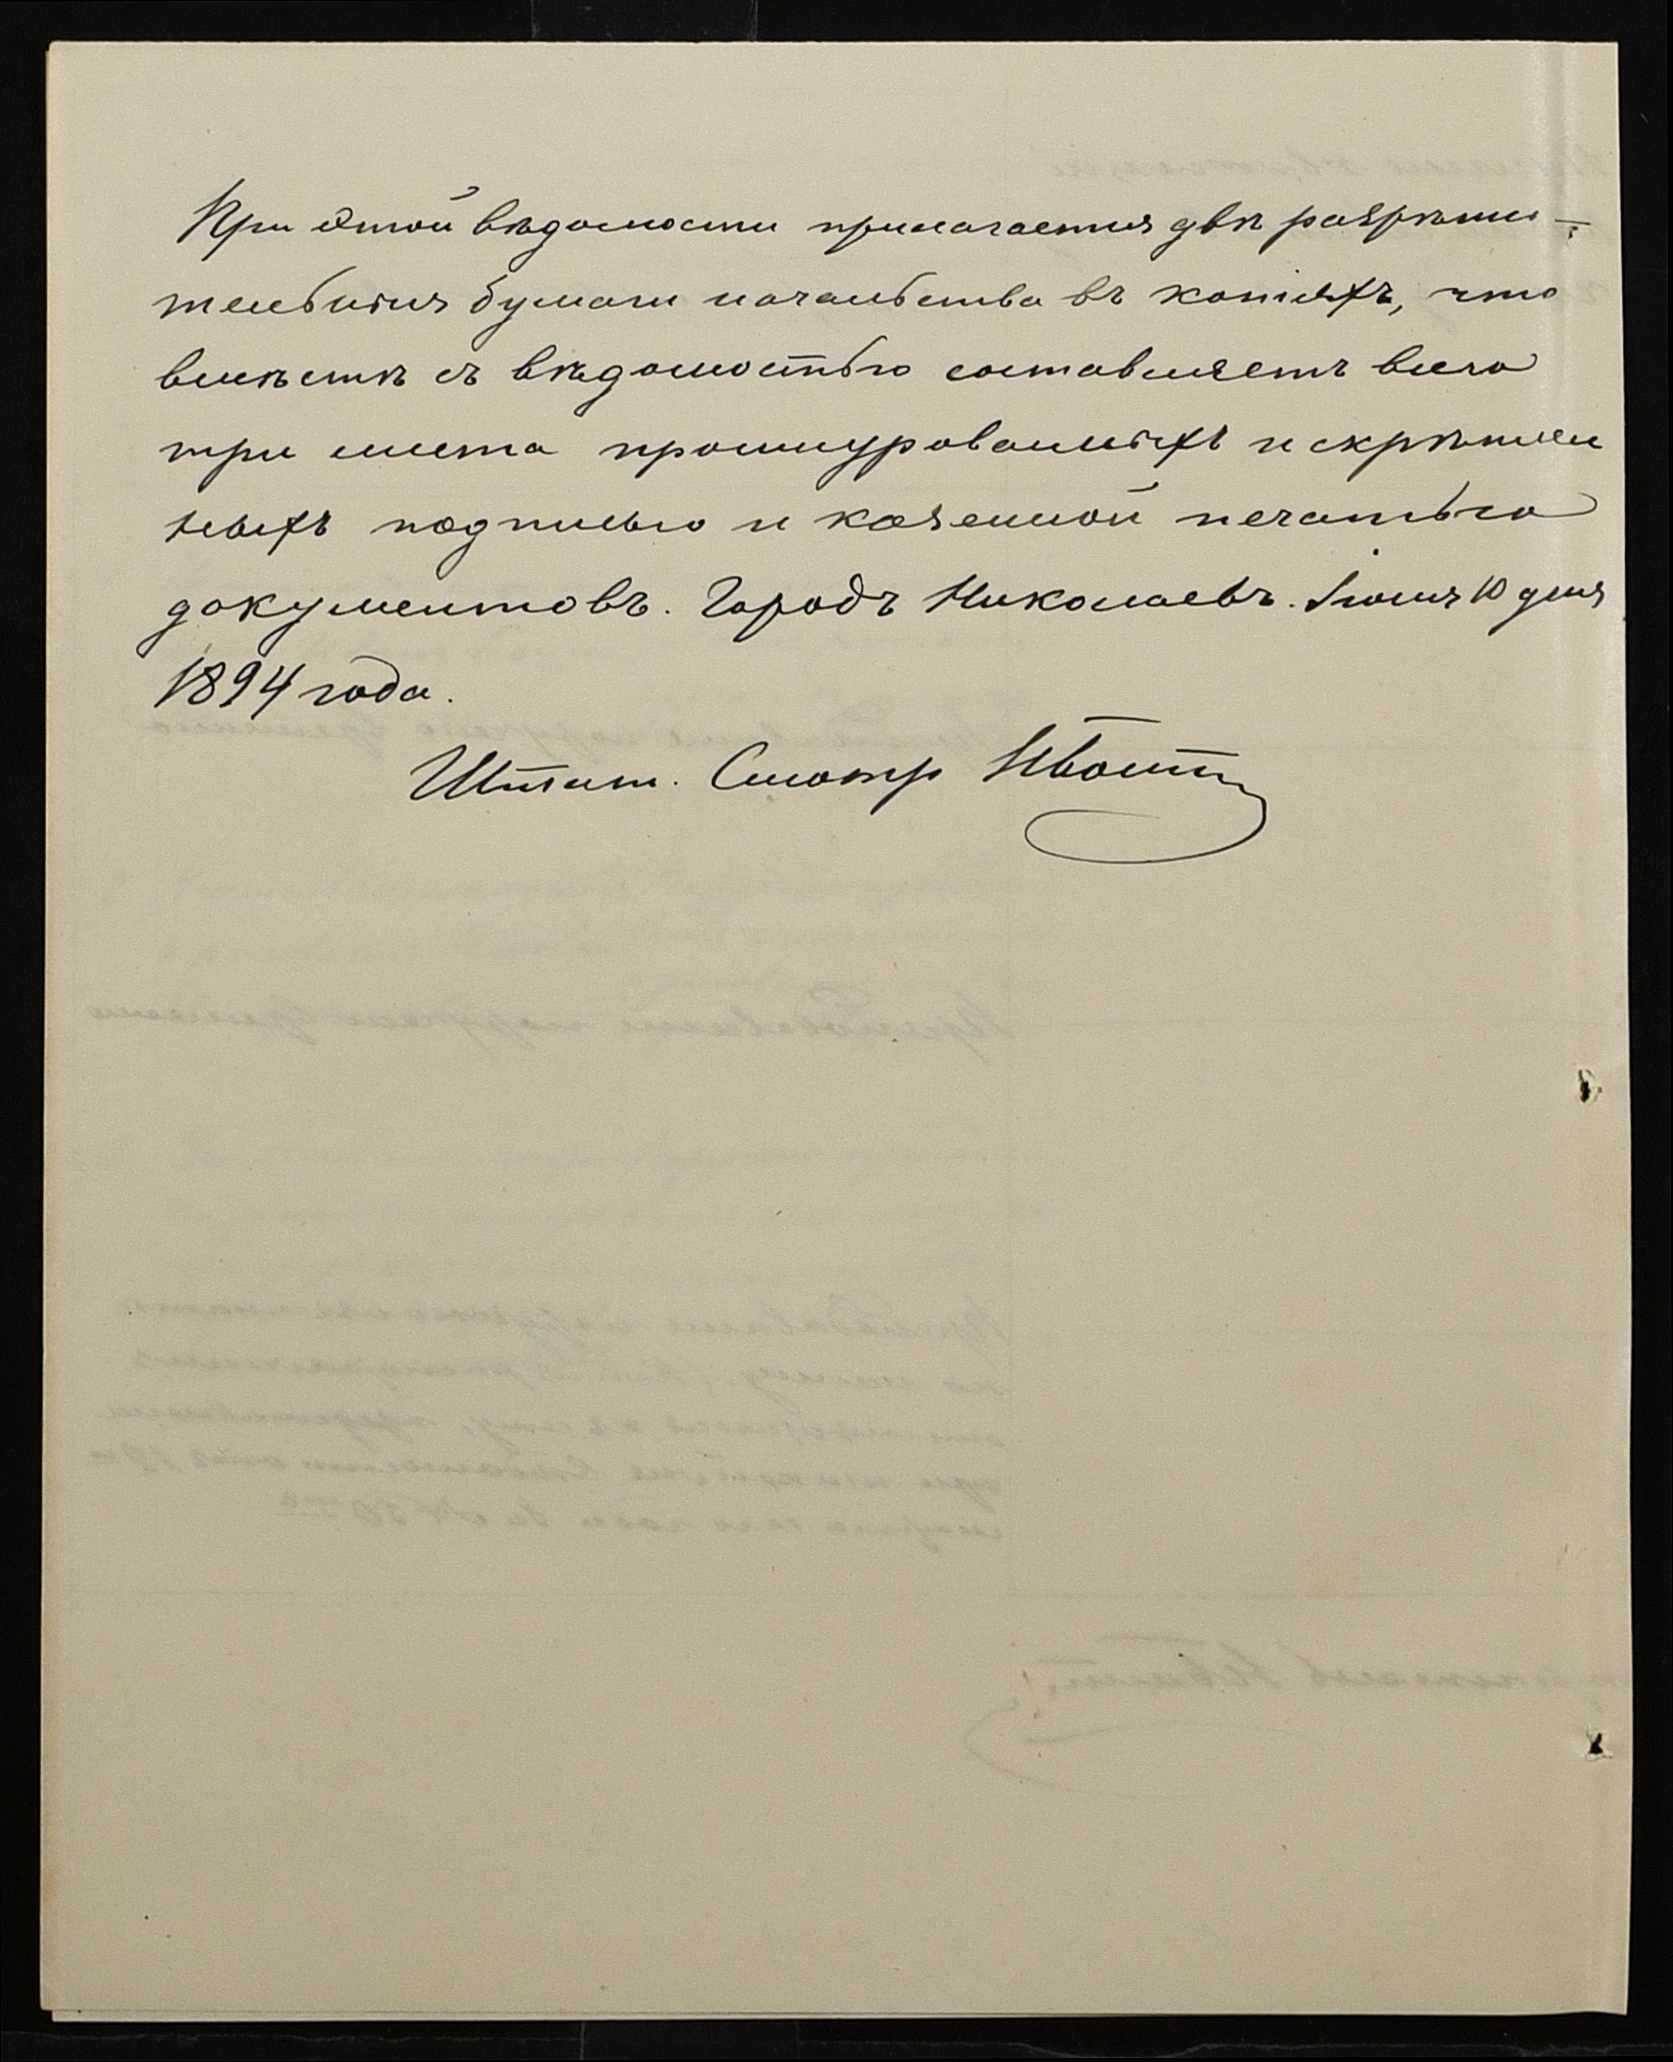 При этой вѣдомости прилагается двѣ разрѣши-
тельныя бумаги начальства въ копіяхъ, что
вмѣстѣ съ вѣдомостью составляетъ всего
три листа прошнурованныхъ и скрѣплен
ныхъ подписью и казенной печатью
документовъ. Городъ Николаевъ. Іюня 10 дня
1894 года.
Штат. Смотр